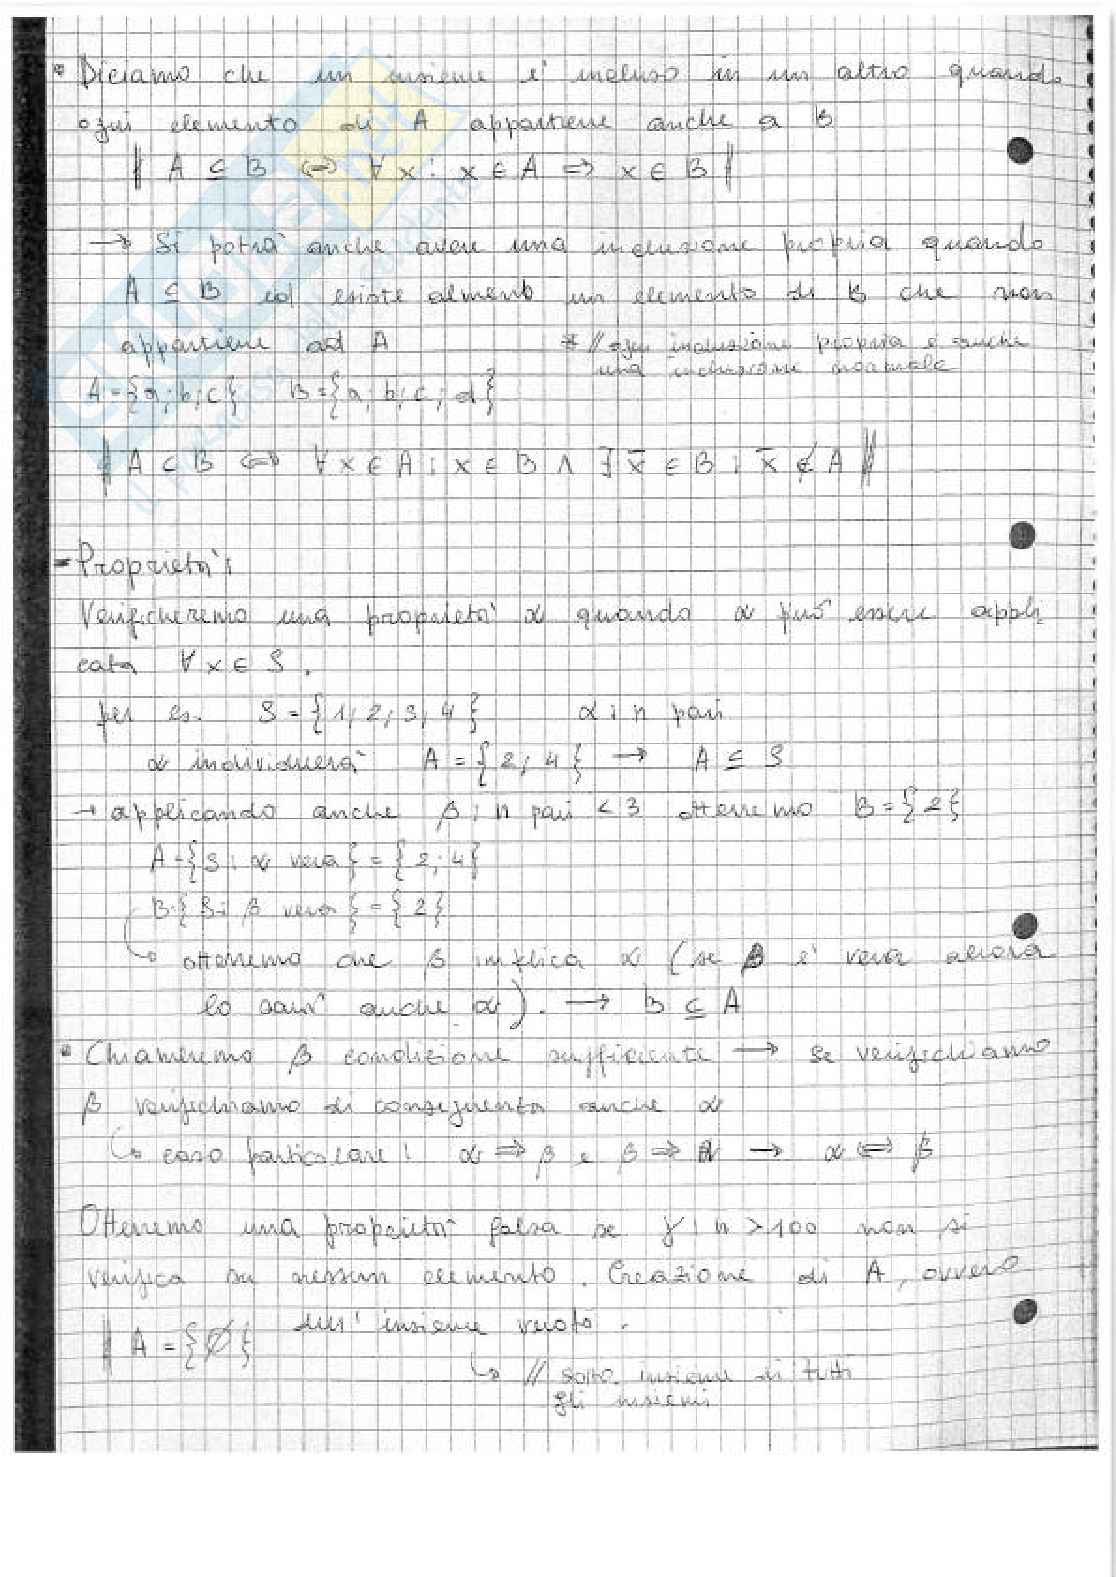 • Diciamo che un insieme e' incluso in un altro quando
ogni elemento di A appartiene anche a B
‖ A ⊆ B ⇔ ∀ x : x ∈ A ⇒ x ∈ B ‖
→ Si potrà anche avere una inclusione propria quando
A ⊆ B ed esiste almeno un elemento di B che non
appartiene ad A
* // ogni inclusione propria è anche
una inclusione normale
A = {a; b; c} B = {a; b; c; d}
‖ A ⊂ B ⇔ ∀ x ∈ A : x ∈ B ∧ ∃ x̄ ∈ B : x̄ ∉ A ‖
- Proprietà:
Verificheremo una proprietà α quando α può essere appli
cata ∀ x ∈ S.
per es. S = {1; 2; 3; 4} α : n pari
α individuerà A = {2; 4} → A ⊆ S
→ applicando anche β : n pari < 3 otterremo B = {2}
A = {S : α vera} = {2; 4}
B = {S : β vera} = {2}
↳ otterremo che β implica α (se β e' vera allora
lo sarà anche α). → B ⊆ A
• Chiameremo β condizione sufficiente → se verifichiamo
β verifichiamo di conseguenza anche α
↳ caso particolare : α ⇒ β e β ⇒ α → α ⇔ β
Otterremo una proprietà falsa se γ : n > 100 non si
verifica su nessun elemento. Creazione di A, ovvero
‖ A = {∅} dell' insieme vuoto.
↳ // sotto insieme di tutti
gli insiemi